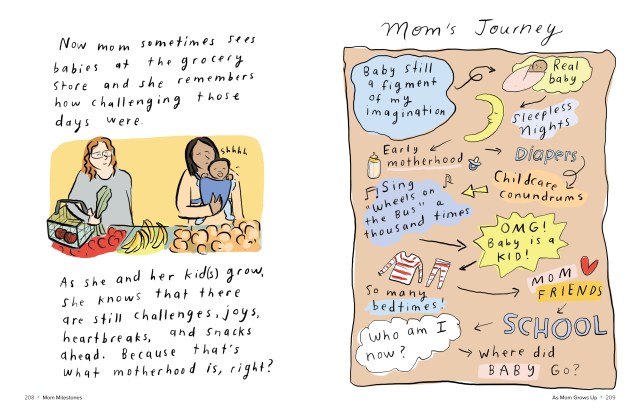 Now mom sometimes sees
babies at the grocery
store and she remembers
how challenging those
days were.
shhhh
As she and her kid(s) grow,
she knows that there
are still challenges, joys,
heartbreaks, and snacks
ahead. Because that's
what motherhood is, right?
208 • Mom Milestones
Mom's Journey
Baby still
a figment
of my
imagination
Real
baby
Sleepless
Nights
Early
motherhood
Diapers
Childcare
conundrums
Sing
"Wheels on
the Bus" a
thousand times
OMG!
Baby is a
KID!
So many
bedtimes!
MOM
FRIENDS
SCHOOL
Who am I
now?
Where did
BABY Go?
As Mom Grows Up • 209